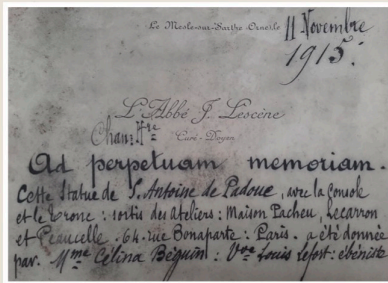 Le Mesle-sur-Sarthe-Orne, le 11 Novembre
1915.
L'Abbé J. Lescène
Chan. Hre
Curé-Doyen
Ad perpetuam memoriam.
Cette Statue de S. Antoine de Padoue, avec la Console
et le Tronc : sortis des ateliers : Maison Pacheu, Lecarron
et Peaucelle : 64. rue Bonaparte : Paris. a été donnée
par. Mme Célina Béguin : Vve Louis Lefort : ébéniste